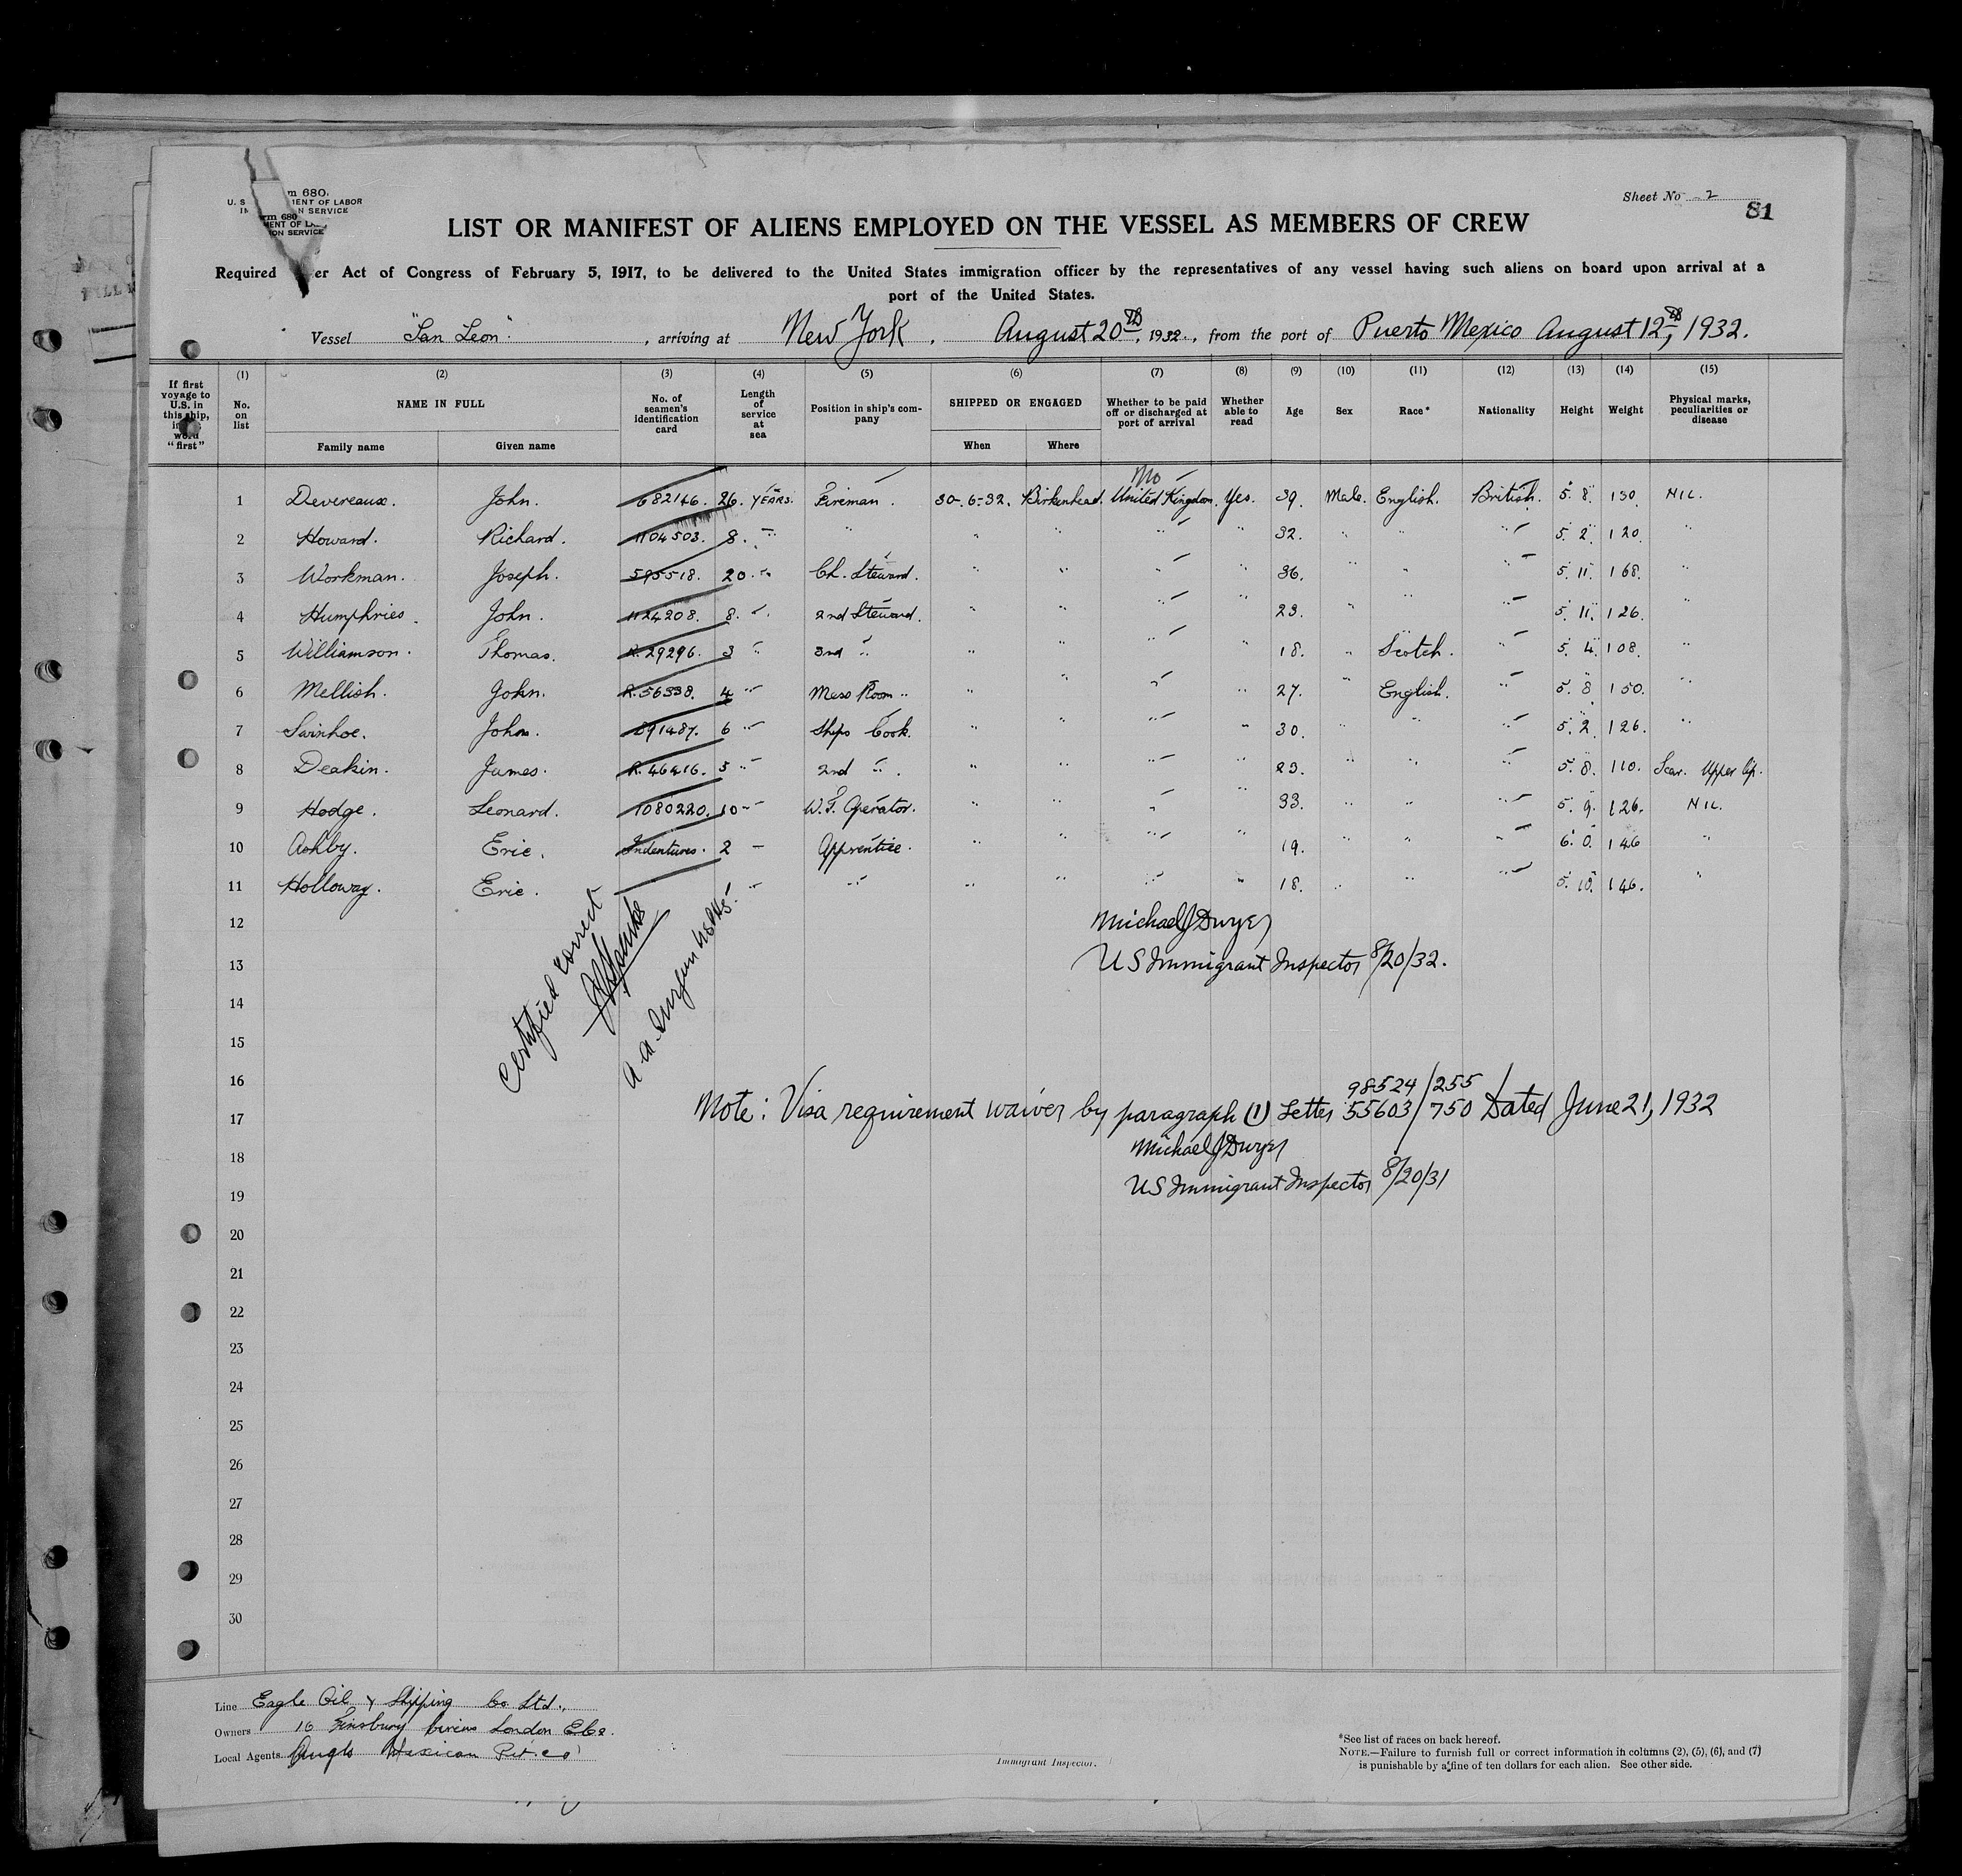 m 680.
U. S. MENT OF LABOR
IN N SERVICE
rm 680
MENT OF LA
ION SERVICE
Sheet No 2
81
LIST OR MANIFEST OF ALIENS EMPLOYED ON THE VESSEL AS MEMBERS OF CREW
Required er Act of Congress of February 5, 1917, to be delivered to the United States immigration officer by the representatives of any vessel having such aliens on board upon arrival at a
port of the United States.
Vessel "San Leon". , arriving at New York, August 20th, 1932., from the port of Puerto Mexico August 12th, 1932.
If first voyage to U.S. in this ship, word "first" (1) No. on list (2) NAME IN FULL Family name Given name (3) No. of seamen's identification card (4) Length of service at sea (5) Position in ship's company (6) SHIPPED OR ENGAGED When Where (7) Whether to be paid off or discharged at port of arrival (8) Whether able to read (9) Age (10) Sex (11) Race* (12) Nationality (13) Height (14) Weight (15) Physical marks, peculiarities or disease
No
1 Devereaux. John. 682146. 26. YEARS. Fireman. 30-6-32. Birkenhead. United Kingdom. Yes. 39. Male. English. British. 5. 8. 130. NIL.
2 Howard. Richard. 1104503. 8. " " " " " " 32. " " " 5. 2. 120. "
3 Workman. Joseph. 595518. 20. " Ch. Steward. " " " " 36. " " " 5. 11. 168. "
4 Humphries. John. 1124208. 8. " 2nd Steward. " " " " 23. " " " 5. 11. 126. "
5 Williamson. Thomas. R. 29296. 3 " 3rd " " " " " 18. " Scotch. " 5. 4. 108. "
6 Mellish. John. R. 56338. 4 " Mess Room " " " " " 27. " English. " 5. 8 150. "
7 Swinhoe. John. 891487. 6 " Ships Cook. " " " " 30. " " " 5. 2. 126. "
8 Deakin. James. R. 46416. 5 " 2nd " " " " " 23. " " " 5. 8. 110. Scar. Upper lip.
9 Hodge. Leonard. 1080220. 10 " W.T. Operator. " " " " 33. " " " 5. 9. 126. NIL.
10 Ashby. Eric. Indentures. 2 " Apprentice. " " " " 19. " " " 6. 0. 146 "
11 Holloway. Eric. " " " " " " 18. " " " 5. 10. 146. "
12
13
14
15
16
17
18
19
20
21
22
23
24
25
26
27
28
29
30
Certified Correct
A. A. Surgeon USPHS.
Michael J Dwyer
US Immigrant Inspector 8/20/32.
98524/255
Note: Visa requirement waiver by paragraph (1) Letter 55603/750 Dated June 21, 1932
Michael J Dwyer
US Immigrant Inspector 8/20/31
Line Eagle Oil & Shipping Co. Ltd.,
Owners 16 Finsbury Circus London E.C.2.
Local Agents Anglo Mexican Pet. Co
Immigrant Inspector.
*See list of races on back hereof.
NOTE.—Failure to furnish full or correct information in columns (2), (5), (6), and (7)
is punishable by a fine of ten dollars for each alien. See other side.